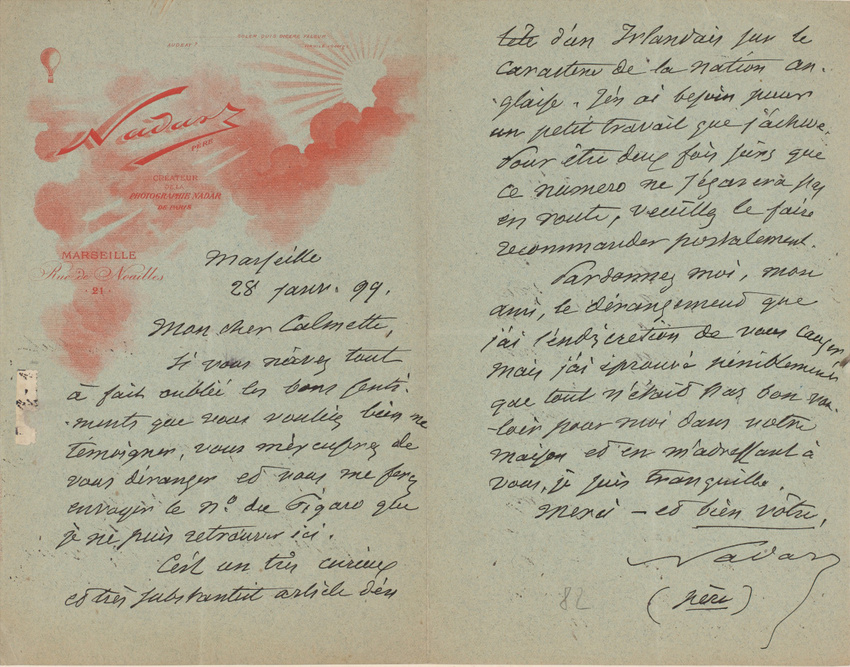 Nadar
PÈRE
CRÉATEUR
DE LA
PHOTOGRAPHIE NADAR
DE PARIS
MARSEILLE
Rue de Noailles
21
Marseille
28 janv. 99.
Mon cher Calmette,
Si vous n'avez tout
à fait oublié les bons senti-
-ments que vous vouliez bien me
témoigner, vous m'excuserez de
vous déranger et vous me ferez
envoyer le no. du Figaro que
je ne puis retrouver ici.
C'est un très curieux
et très substantiel article d'un
tête d'un Irlandais sur le
caractère de la nation an-
glaise. J'en ai besoin pour
un petit travail que j'achève.
Pour être deux fois sûrs que
ce numéro ne s'égarera pas
en route, veuillez le faire
recommander postalement.
Pardonnez moi, mon
ami, le dérangement que
j'ai l'indiscrétion de vous causer
mais j'ai éprouvé péniblement
que tout n'était pas bon vou-
-loir pour moi dans votre
maison et en m'adressant à
vous, je suis tranquille.
Merci – et bien vôtre,
Nadar
(père)
82